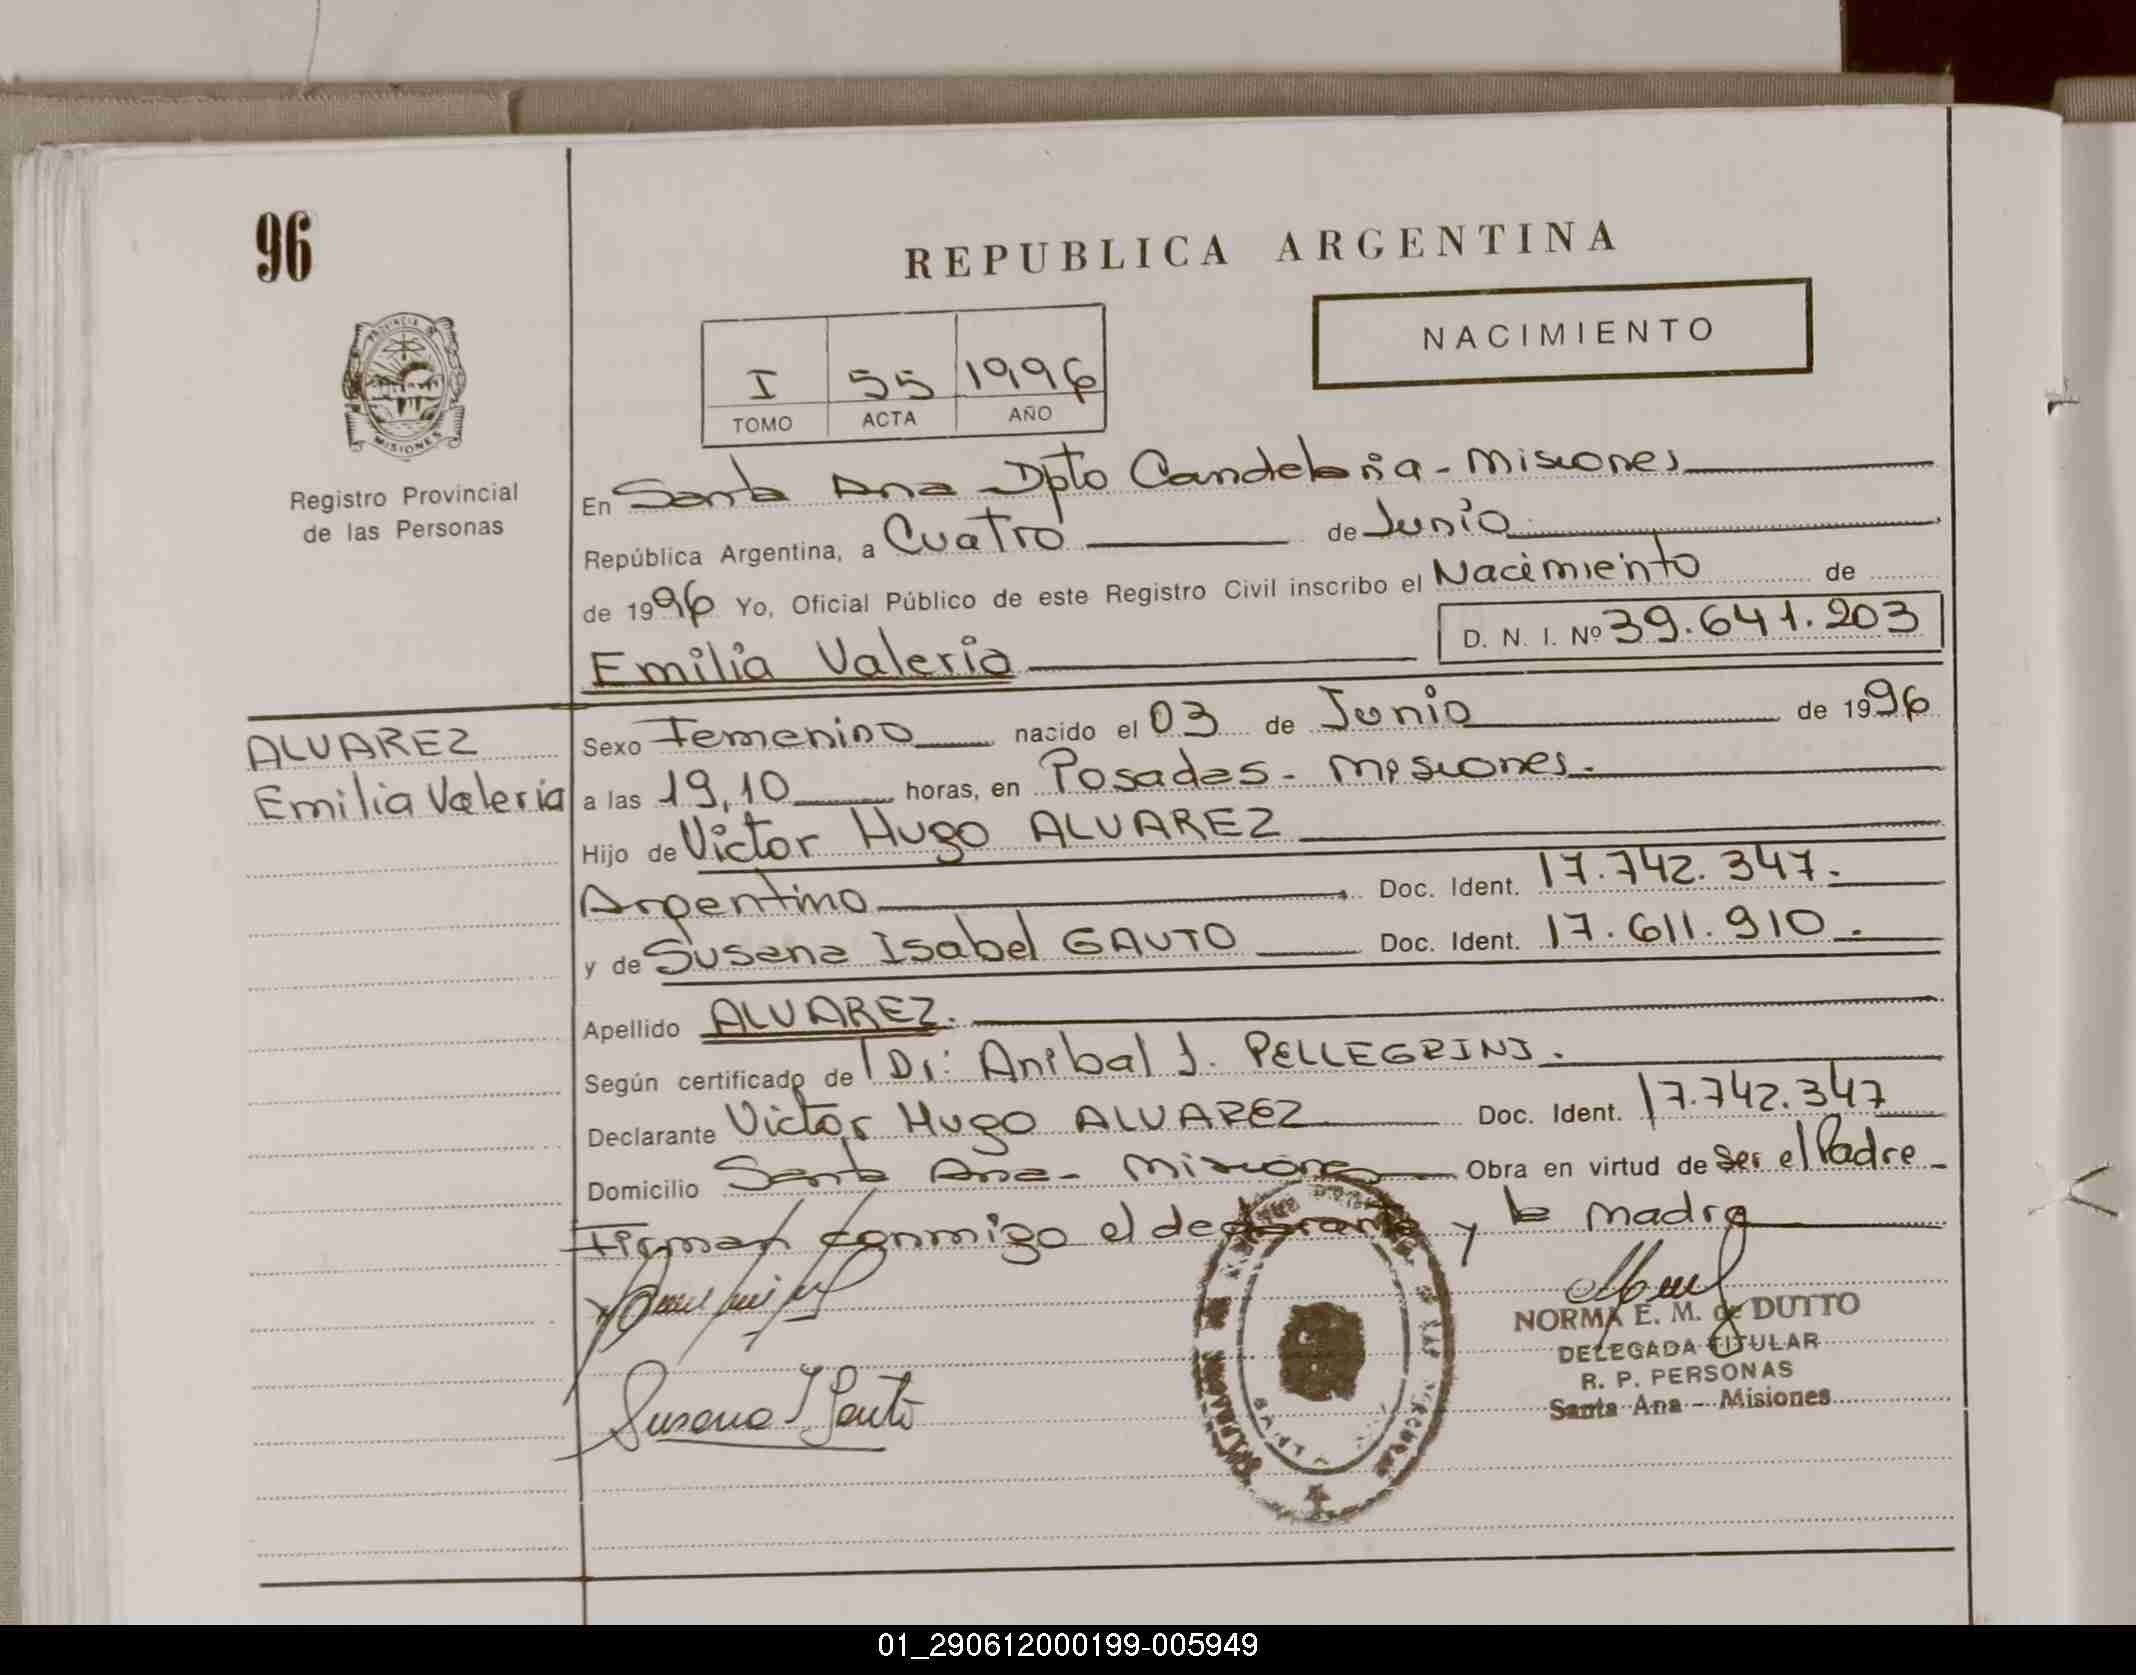 96
REPUBLICA ARGENTINA
NACIMIENTO
I 55 1996
TOMO ACTA AÑO
PROVINCIA D
MISIONES
Registro Provincial
de las Personas
En Santa Ana Dpto Candelaria - Misiones
República Argentina, a Cuatro de Junio
de 1996 Yo, Oficial Público de este Registro Civil inscribo el Nacimiento de
Emilia Valeria D. N. I. Nº 39.641.203
ALVAREZ
Emilia Valeria
Sexo Femenino nacido el 03 de Junio de 1996
a las 19,10 horas, en Posadas - Misiones.
Hijo de Victor Hugo ALVAREZ
Argentino Doc. Ident. 17.742.347.
y de Susana Isabel GAUTO Doc. Ident. 17.611.910.
Apellido ALVAREZ.
Según certificado de Dr: Anibal J. PELLEGRINI.
Declarante Victor Hugo ALVAREZ Doc. Ident. 17.742.347
Domicilio Santa Ana - Misiones Obra en virtud de ser el Padre -
Firman conmigo el declarante y la madre
Susana I Gauto
NORMA E. M. de DUTTO
DELEGADA TITULAR
R. P. PERSONAS
Santa Ana - Misiones
01_290612000199-005949